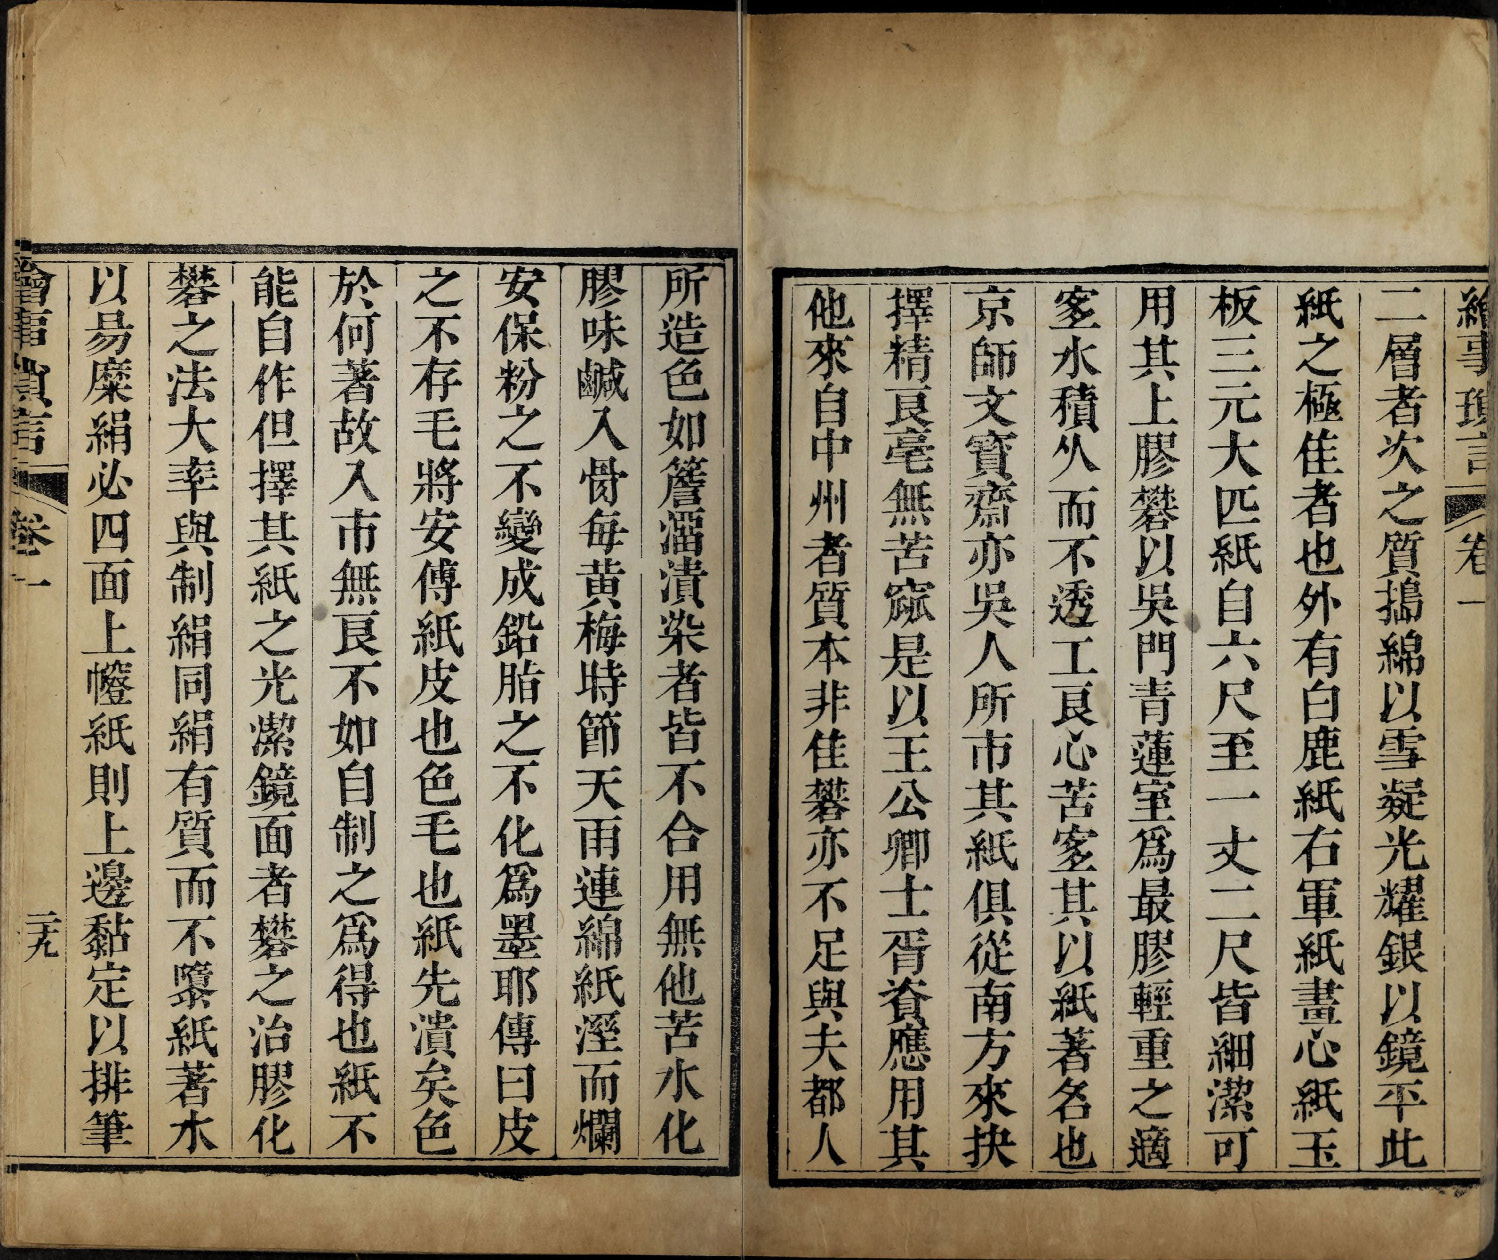 繪事瑣言 卷一
二層者次之質搗綿以雪凝光耀銀以鏡平此
紙之極佳者也外有白鹿紙右軍紙畫心紙玉
板三元大匹紙自六尺至一丈二尺皆細潔可
用其上膠礬以吳門青蓮室爲最膠輕重之適
宻水積久而不透工良心苦宻其以紙著名也
京師文寶齋亦吳人所市其紙俱從南方來抉
擇精良毫無苦窳是以王公卿士胥資應用其
他來自中州者質本非佳礬亦不足與夫都人
所造色如簷溜漬染者皆不合用無他苦水化
膠味鹹入骨每黄梅時節天雨連綿紙溼而爛
安保粉之不變成鉛脂之不化爲墨耶傳曰皮
之不存毛將安傅紙皮也色毛也紙先潰矣色
於何著故入市無良不如自制之爲得也紙不
能自作但擇其紙之光潔鏡面者礬之治膠化
礬之法大率與制絹同絹有質而不隳紙著水
以易糜絹必四面上幰紙則上邊黏定以排筆
繪事瑣言 卷一 二十九